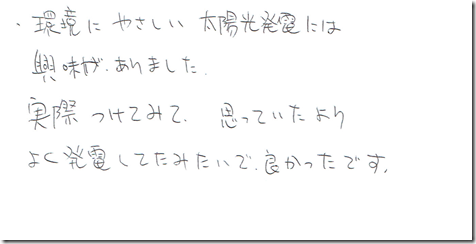 ・環境にやさしい太陽光発電には
興味が、ありました。
実際つけてみて、思っていたより
よく発電してたみたいで、良かったです。